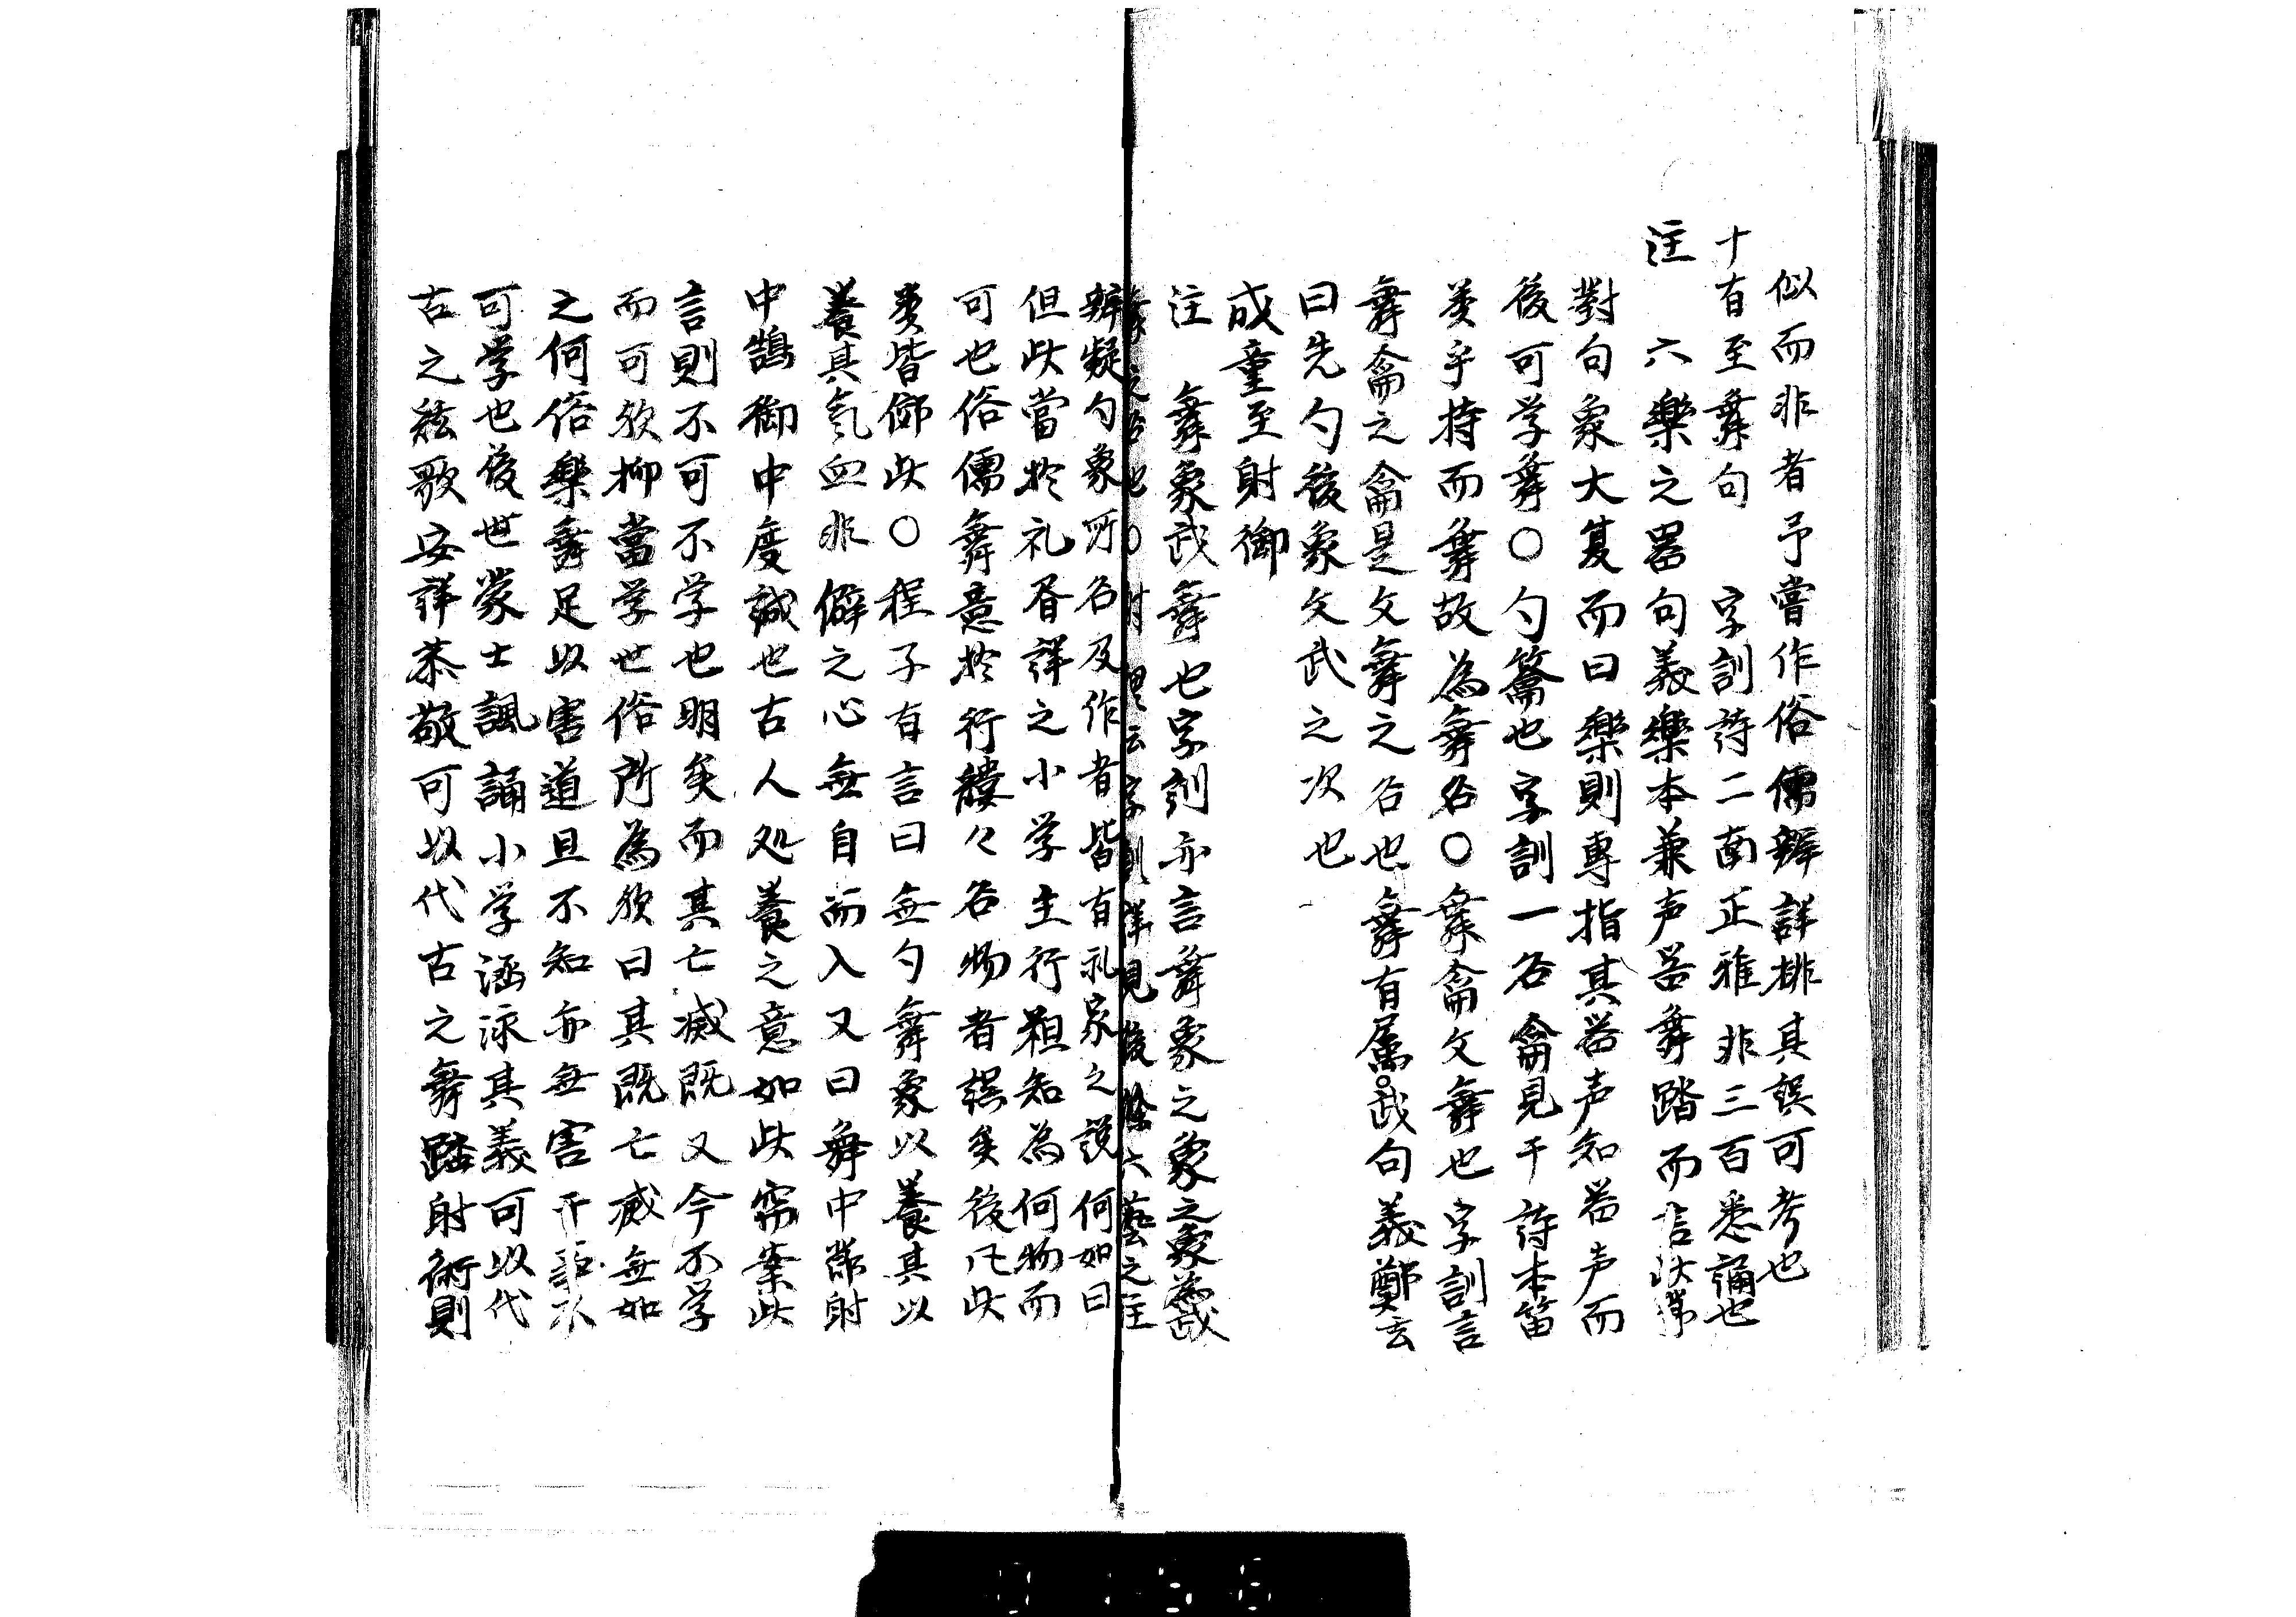 似而非者予嘗作俗儒辨詳排其誤可考也
十有至舞句　字訓詩二南正雅非三百悉誦也
注　六樂之器句義樂本兼声器舞踏而言此常
對句象大夏而曰樂則專指其器声知器声而
後可学舞○勺籥也字訓一名龠見于詩本笛
类乎持而舞故為舞名○舞龠文舞也字訓言
舞龠之龠是文舞之名也舞有属○武句義鄭云
曰先勺後象文武之次也
成童至射御
注　舞象武舞也字訓亦言舞象之象之象為武
舞之名也○射御云字訓詳見後條六藝之注
辨疑勺象所名及作者皆有礼家之說何如曰
但此當於礼者詳之小学生行粗知為何物而
可也俗儒舞意於行褸々名物者誤矣後凡此
类皆傚此○程子有言曰無勺舞象以養其以
養其氣血非僻之心無自而入又曰舞中節射
中鵠御中度誠也古人処養之意如此窃案此
言則不可不学也明矣而其亡滅既又今不学
而可欤抑當学世俗所為欤曰其既亡滅無如
之何俗樂舞足以害道且不知亦無害干詔不
可学也後世蒙士諷誦小学涵泳其義可以代
古之絃歌安詳恭敬可以代古之舞踏射術則